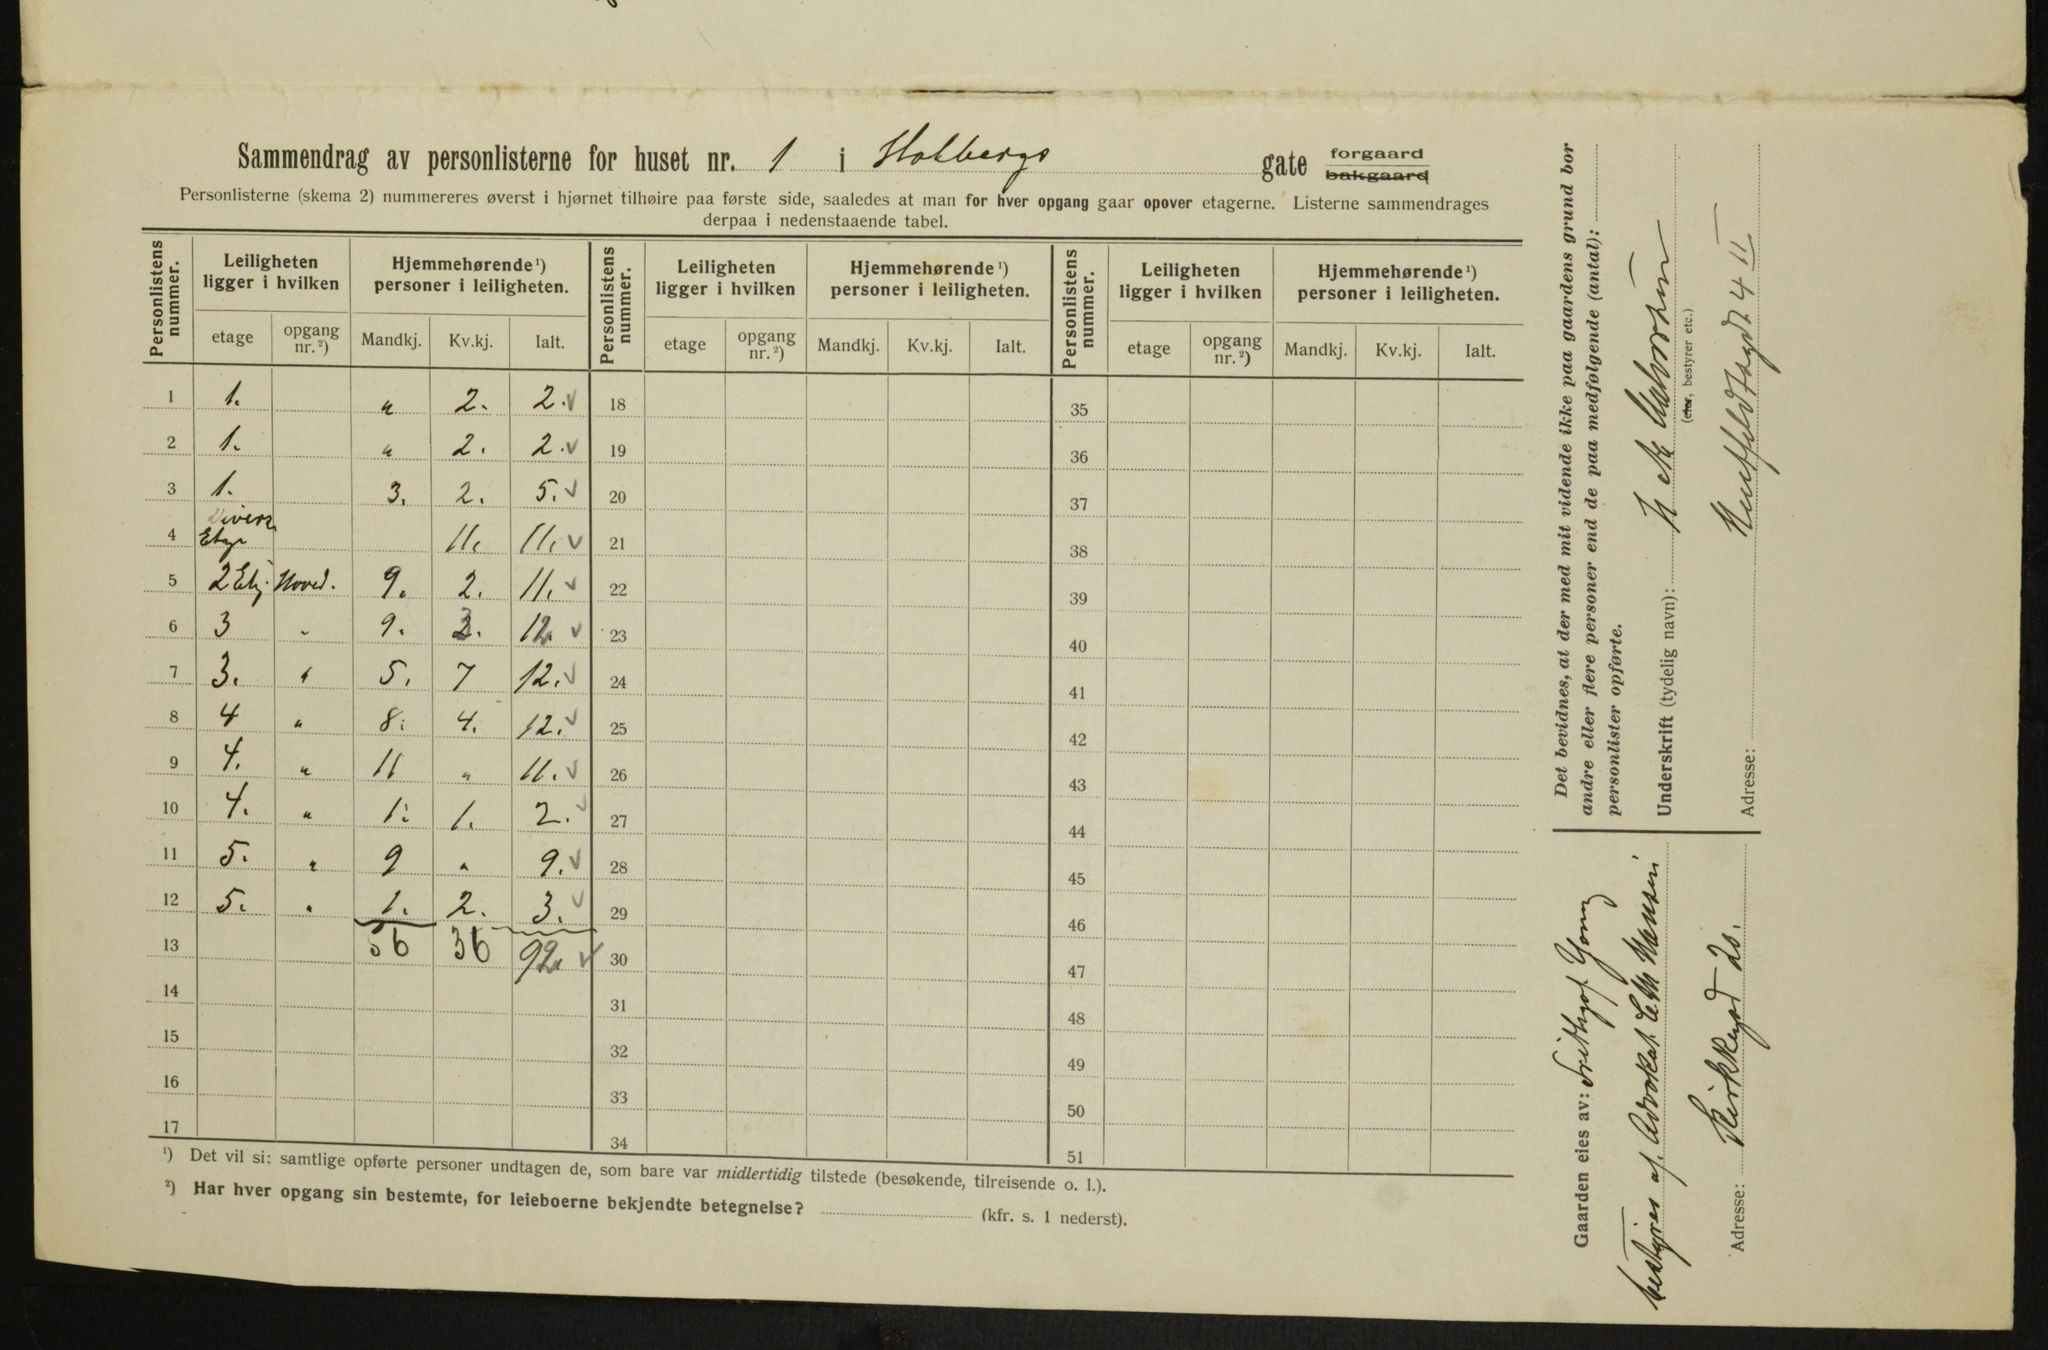 Sammendrag av personlisterne for huset nr. 1 i Holbergs gate forgaard bakgaard
Personlisterne (skema 2) nummereres øverst i hjørnet tilhøire paa første side, saaledes at man for hver opgang gaar opover etagerne. Listerne sammendrages
derpaa i nedenstaaende tabel.
Personlistens nummer. Leiligheten ligger i hvilken Hjemmehørende ¹) personer i leiligheten. Personlistens nummer. Leiligheten ligger i hvilken Hjemmehørende ¹) personer i leiligheten. Personlistens nummer. Leiligheten ligger i hvilken Hjemmehørende ¹) personer i leiligheten.
etage opgang nr. ²) Mandkj. Kv.kj. Ialt. etage opgang nr. ²) Mandkj. Kv.kj. Ialt. etage opgang nr. ²) Mandkj. Kv.kj. Ialt.
1 1. " 2. 2. 18 35
2 1. " 2. 2. 19 36
3 1. 3. 2. 5. 20 37
4 Diverse Etager 11. 11. 21 38
5 2 Etg. Hoved. 9. 2. 11. 22 39
6 3 " 9. 3. 12. 23 40
7 3. " 5. 7 12. 24 41
8 4 " 8. 4. 12. 25 42
9 4. " 11 " 11. 26 43
10 4. " 1. 1. 2. 27 44
11 5. " 9 " 9. 28 45
12 5. " 1. 2. 3. 29 46
13 56 36 92. 30 47
14 31 48
15 32 49
16 33 50
17 34 51
¹) Det vil si: samtlige opførte personer undtagen de, som bare var midlertidig tilstede (besøkende, tilreisende o. l.).
²) Har hver opgang sin bestemte, for leieboerne bekjendte betegnelse? (kfr. s. 1 nederst).
Det bevidnes, at der med mit vidende ikke paa gaardens grund bor
andre eller flere personer end de paa medfølgende (antal):
personlister opførte.
Underskrift (tydelig navn):
(eier, bestyrer etc.)
Adresse: Huitfeldtsgt 4 II
Gaarden eies av: Frithjof Young
bestyres af. Advokat C M Hansen
Adresse: Kirkegd 20.